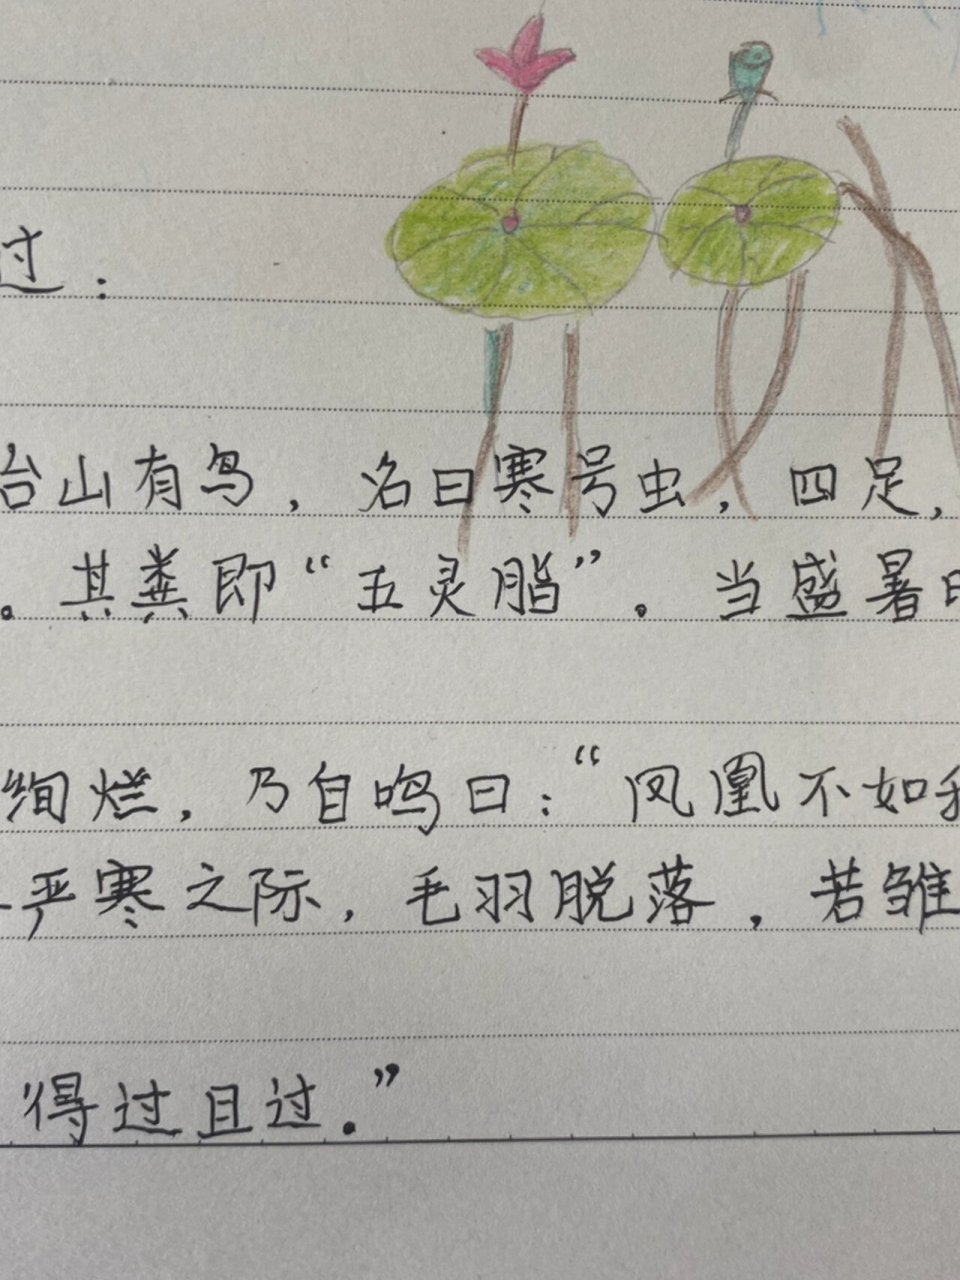 过：
台山有鸟，名曰寒号虫，四足，
。其粪即“五灵脂”。当盛暑时
绚烂，乃自鸣曰：“凤凰不如我
严寒之际，毛羽脱落，若雏
得过且过.”